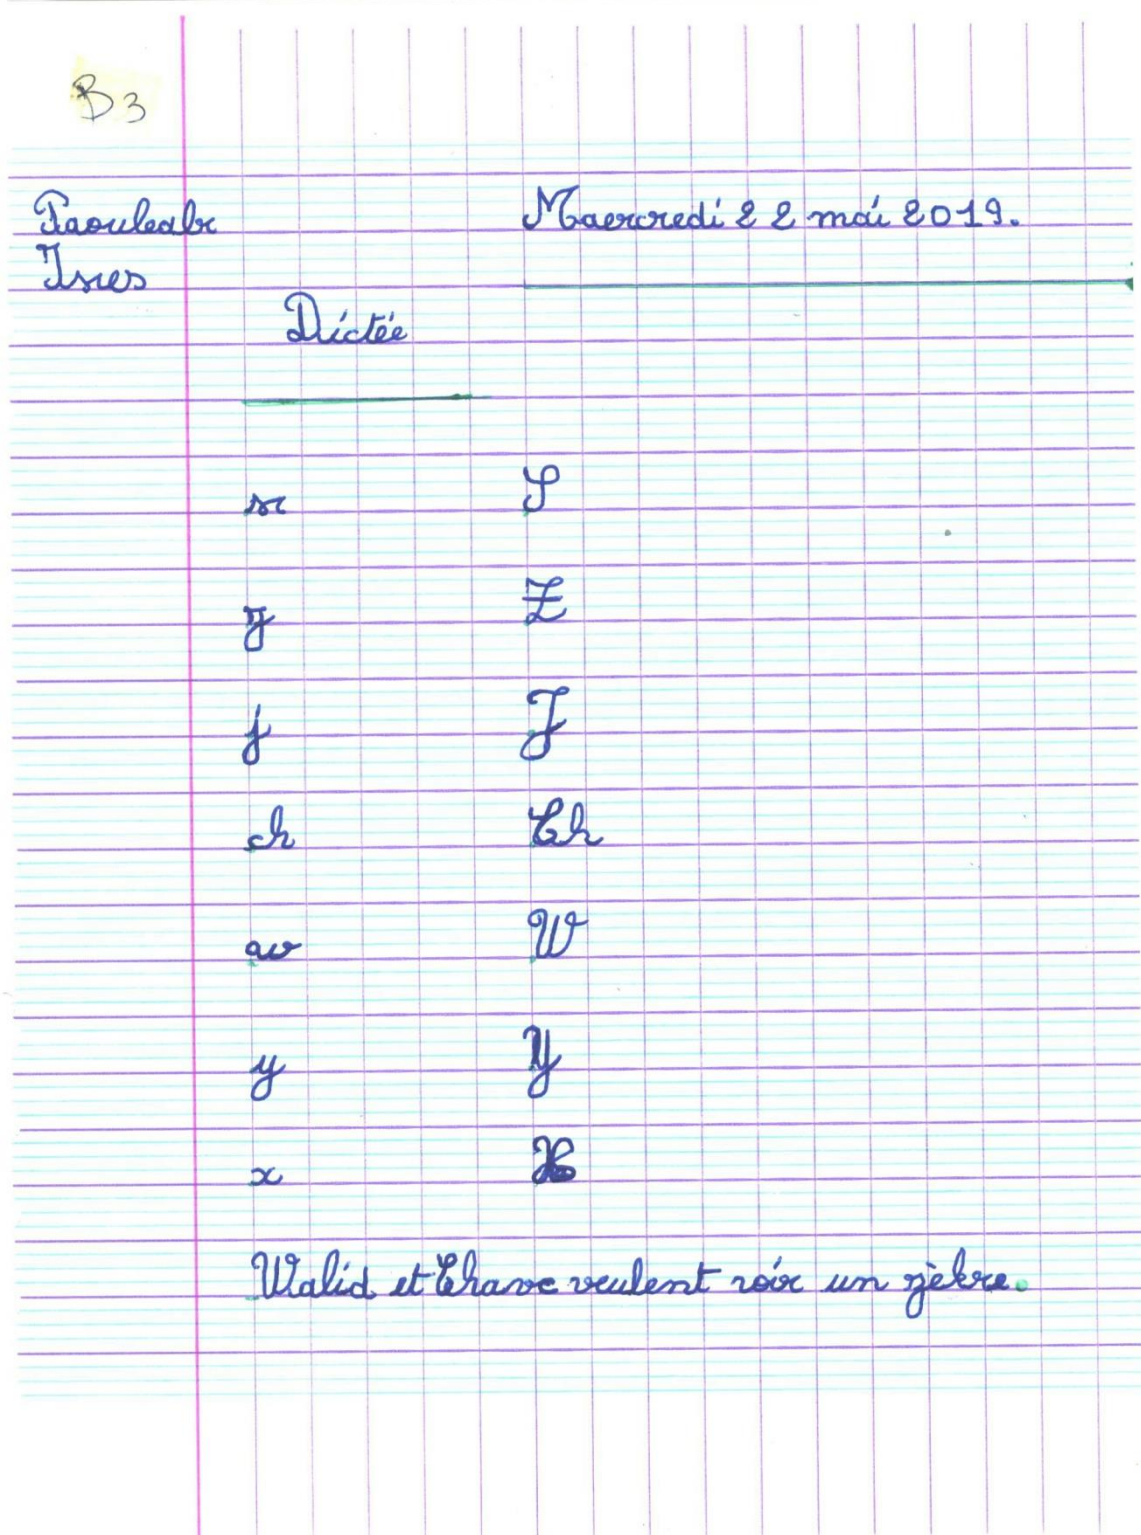 B3
Maercredi 22 mai 2019.
Dictée
S
Z
j J
ch Ch
w W
y Y
x X
Walid et Chave veulent voir un zèbre.